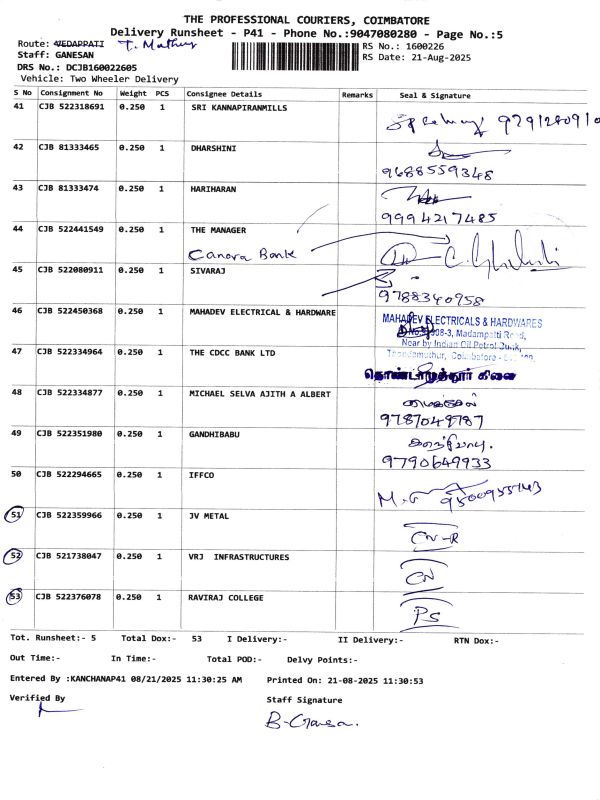 THE PROFESSIONAL COURIERS, COIMBATORE
Delivery Runsheet - P41 - Phone No.:9047080280 - Page No.:5
Route: VEDAPPATI
RS No.: 1600226
Staff: GANESAN
RS Date: 21-Aug-2025
DRS No.: DCJB160022605
Vehicle: Two Wheeler Delivery
S No Consignment No Weight PCS Consignee Details Remarks Seal & Signature
41 CJB 522318691 0.250 1 SRI KANNAPIRANMILLS
42 CJB 81333465 0.250 1 DHARSHINI
9688559348
43 CJB 81333474 0.250 1 HARIHARAN
9994217485
44 CJB 522441549 0.250 1 THE MANAGER
Canara Bank
45 CJB 522080911 0.250 1 SIVARAJ
9788340958
46 CJB 522450368 0.250 1 MAHADEV ELECTRICAL & HARDWARE
MAHADEV ELECTRICALS & HARDWARES
Madampatti Road,
Near by Indian Oil Petrol Bunk,
47 CJB 522334964 0.250 1 THE CDCC BANK LTD
தொண்டாமுத்தூர் கிளை
48 CJB 522334877 0.250 1 MICHAEL SELVA AJITH A ALBERT
9787049787
49 CJB 522351980 0.250 1 GANDHIBABU
9790649933
50 CJB 522294665 0.250 1 IFFCO
51 CJB 522359966 0.250 1 JV METAL
CN-R
52 CJB 521738047 0.250 1 VRJ INFRASTRUCTURES
CN
53 CJB 522376078 0.250 1 RAVIRAJ COLLEGE
PS
Tot. Runsheet:- 5 Total Dox:- 53 I Delivery:- II Delivery:- RTN Dox:-
Out Time:- In Time:- Total POD:- Delvy Points:-
Entered By :KANCHANAP41 08/21/2025 11:30:25 AM Printed On: 21-08-2025 11:30:53
Verified By Staff Signature